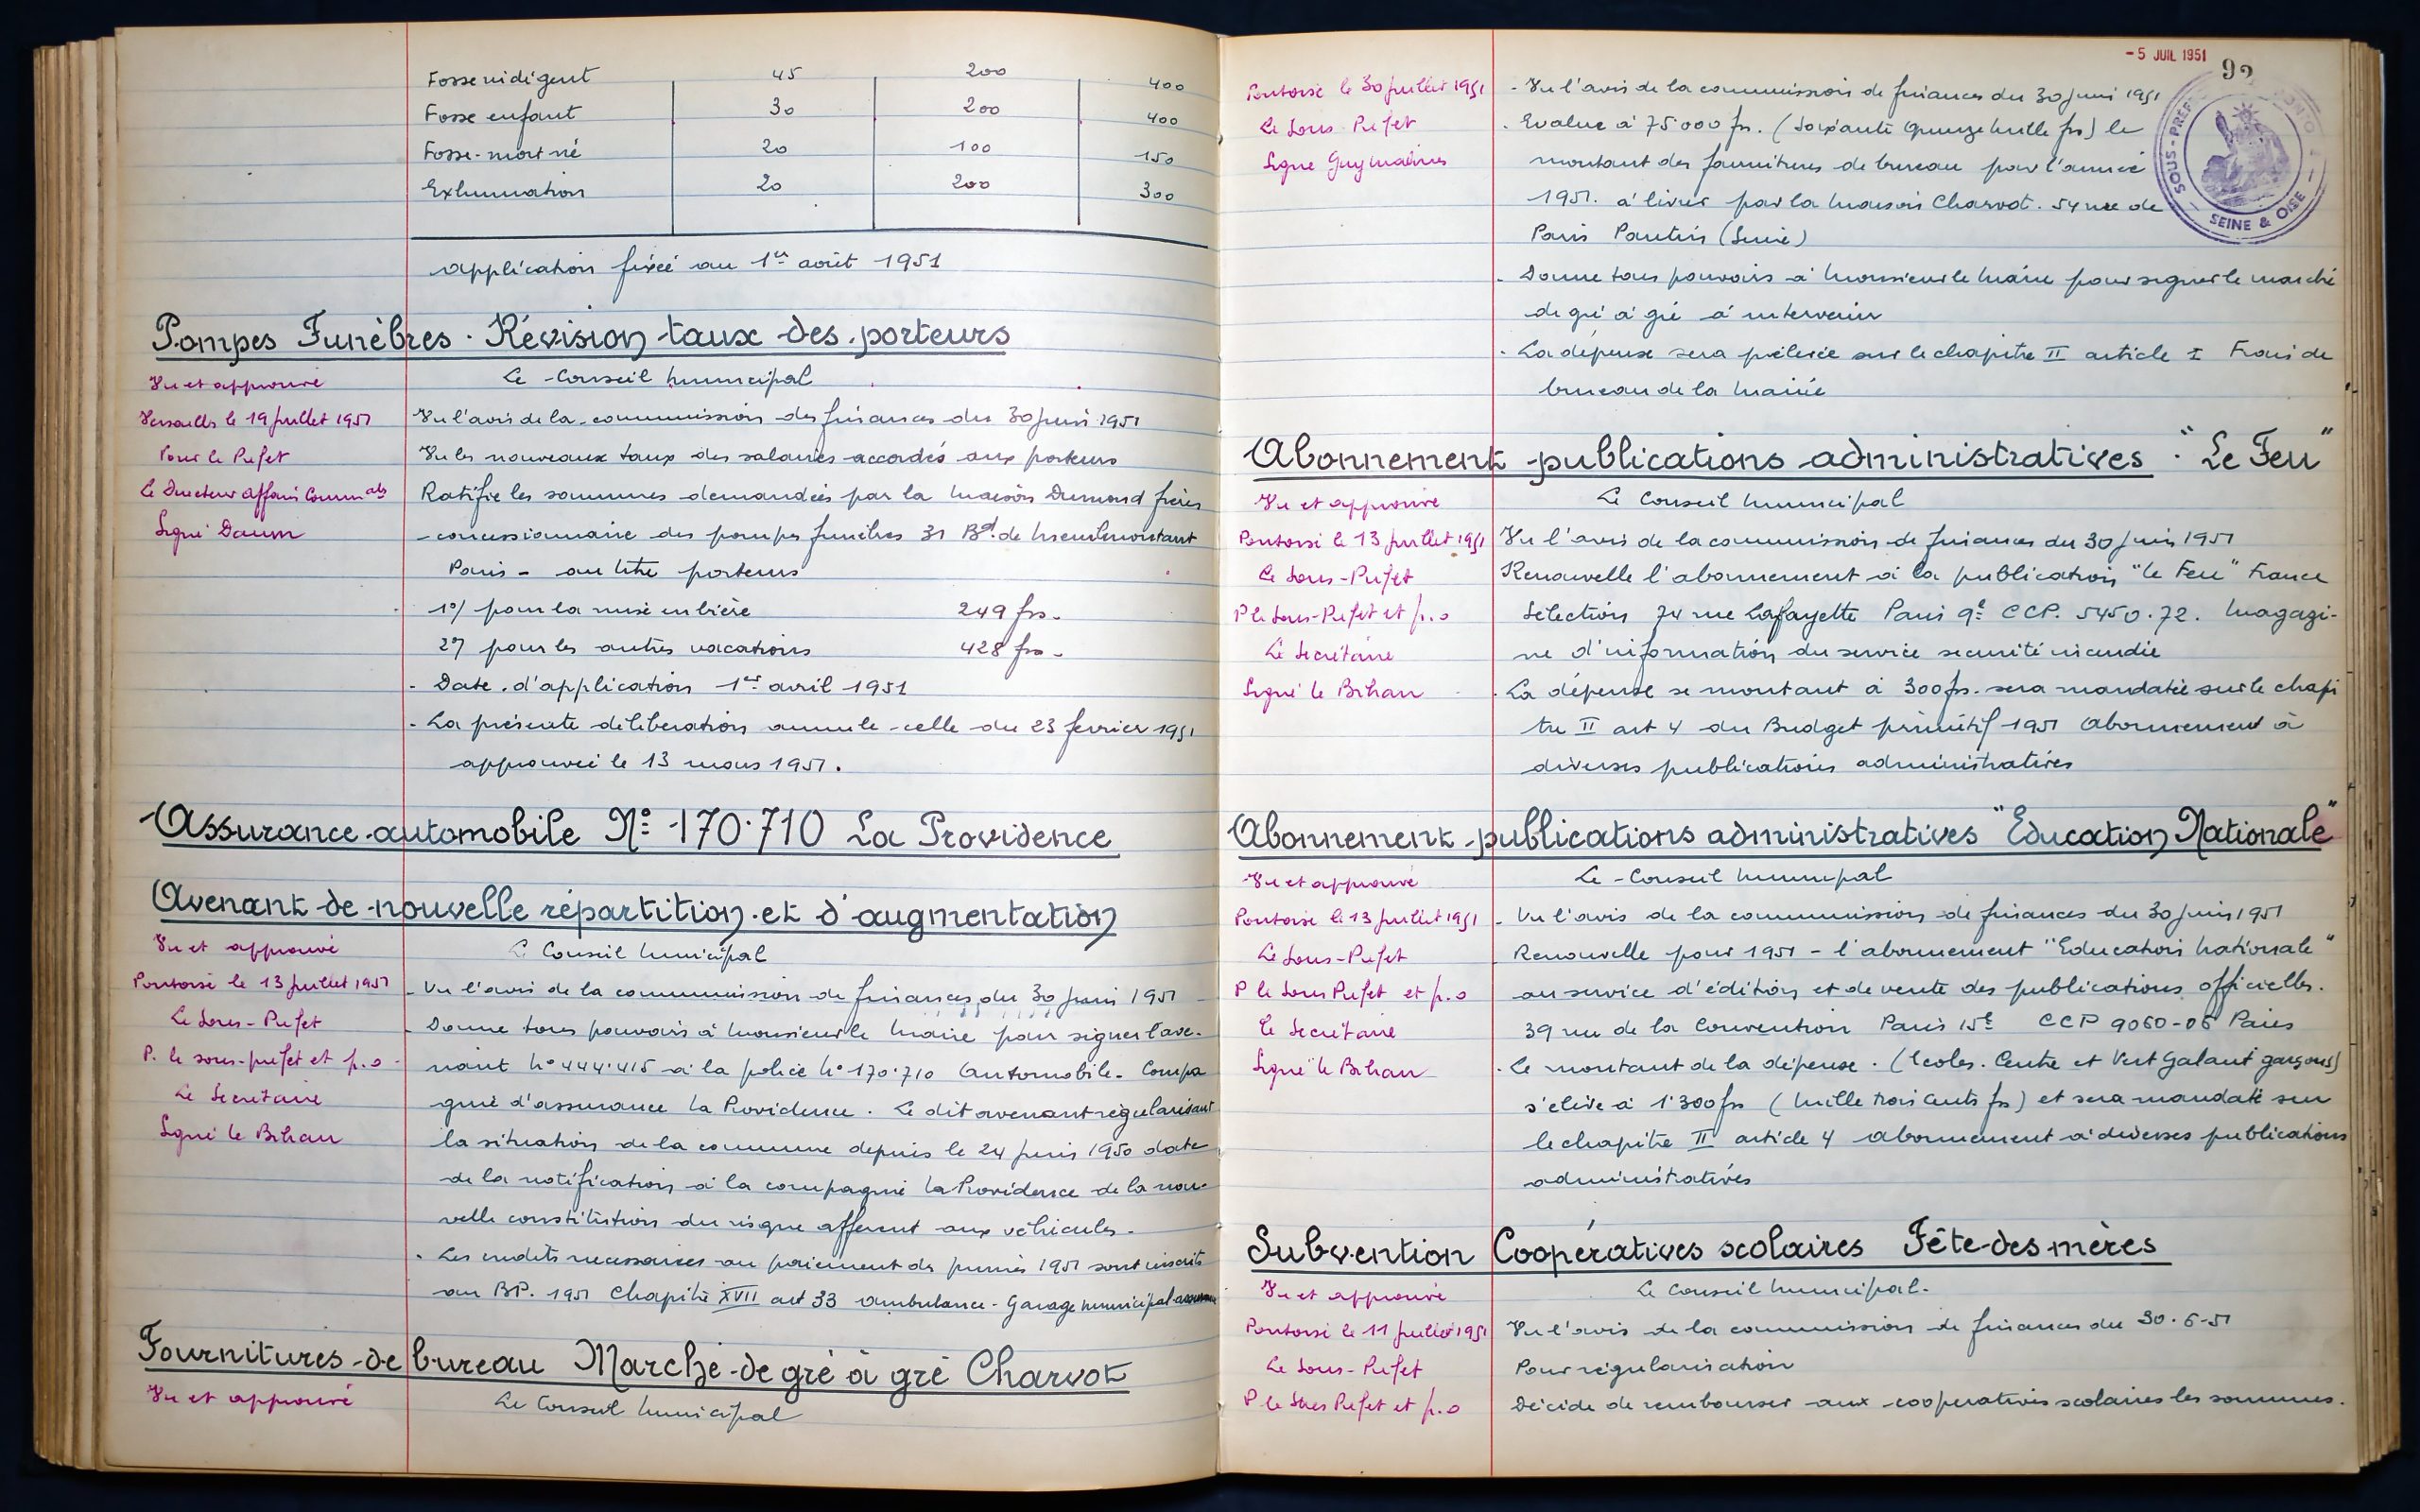 Fosse indigent 45 200 400
Fosse enfant 30 200 400
Fosse-mort né 20 100 150
Exhumation 20 200 300
application fixée au 1er août 1951
Pompes Funèbres. Révision taux des porteurs
Vu et approuvé
Versailles le 19 juillet 1951
Pour le Préfet
Le Directeur Affaires Commales
Signé Daum
Le Conseil municipal
Vu l'avis de la commission des finances du 30 juin 1951
Vu les nouveaux taux des salaires accordés aux porteurs
Ratifie les sommes demandées par la maison Dumond frères
concessionnaire des pompes funèbres 31 Bd. de Ménilmontant
Paris - au titre porteurs
1°/ pour la mise en bière 249 frs.
2°/ pour les autres vacations 428 frs.
- Date d'application 1er avril 1951
- La présente délibération annule celle du 23 février 1951
approuvée le 13 mars 1951.
Assurance automobile N° 170.710 La Providence
Avenant de nouvelle répartition et d'augmentation
Vu et approuvé
Pontoise le 13 juillet 1951
Le Sous-Préfet
P. le sous-préfet et p.o
Le Secrétaire
Signé le Bihan
Le Conseil municipal
- Vu l'avis de la commission de finances du 30 juin 1951
- Donne tous pouvoirs à Monsieur le Maire pour signer l'ave-
nant N° 444.415 à la police N° 170.710 Automobile. Compa
gnie d'assurance la Providence. Le dit avenant régularisant
la situation de la commune depuis le 24 juin 1950 date
de la notification à la compagnie la Providence de la nou-
velle constitution du risque afférent aux véhicules.
- Les crédits nécessaires au paiement des primes 1951 sont inscrits
au BP. 1951 Chapitre XVII art 33 ambulance - Garage municipal
Fournitures de bureau Marché de gré à gré Charvot
Vu et approuvé
Le Conseil municipal
- 5 JUIL 1951
92
SOUS-PRÉF
SEINE & OISE
Pontoise le 30 juillet 1951
Le Sous Préfet
Signé Guymaines
- Vu l'avis de la commission de finances du 30 juin 1951
- Evalue à 75.000 frs. (soixante quinze mille frs) le
montant des fournitures de bureau pour l'année
1951. à livrer par la maison Charvot. 54 rue de
Paris Pantin (Seine)
- Donne tous pouvoirs à Monsieur le Maire pour signer le marché
de gré à gré à intervenir
- La dépense sera prélevée sur le chapitre II article I Frais de
bureau de la Mairie
Abonnement publications administratives. "Le Feu"
Vu et approuvé
Pontoise le 13 juillet 1951
Le Sous-Préfet
P le Sous-Préfet et p.o
Le Secrétaire
Signé le Bihan
Le Conseil municipal
Vu l'avis de la commission de finances du 30 juin 1951
Renouvelle l'abonnement à la publication "le Feu" France
Sélection 74 rue Lafayette Paris 9e CCP. 5450.72. Magazi-
ne d'information du service sécurité incendie
- La dépense se montant à 300 frs. sera mandatée sur le chapi
tre II art 4 du Budget primitif 1951 Abonnement à
diverses publications administratives
Abonnement publications administratives "Education Nationale"
Vu et approuvé
Pontoise le 13 juillet 1951
Le Sous-Préfet
P le Sous Préfet et p.o
Le Secrétaire
Signé le Bihan
Le Conseil municipal
- Vu l'avis de la commission de finances du 30 juin 1951
Renouvelle pour 1951 - l'abonnement "Education Nationale"
au service d'édition et de vente des publications officielles.
39 rue de la Convention Paris 15e CCP 9060-06 Paris
- Le montant de la dépense. (Ecoles. Centre et Vert Galant garçons)
s'élève à 1'300 frs (mille trois cents frs) et sera mandaté sur
le chapitre II article 4 abonnement à diverses publications
administratives
Subvention Coopératives scolaires Fête des mères
Vu et approuvé
Pontoise le 11 juillet 1951
Le Sous-Préfet
P le Sous Préfet et p.o
Le Conseil municipal.
Vu l'avis de la commission de finances du 30.6.51
Pour régularisation
Décide de rembourser aux coopératives scolaires les sommes.